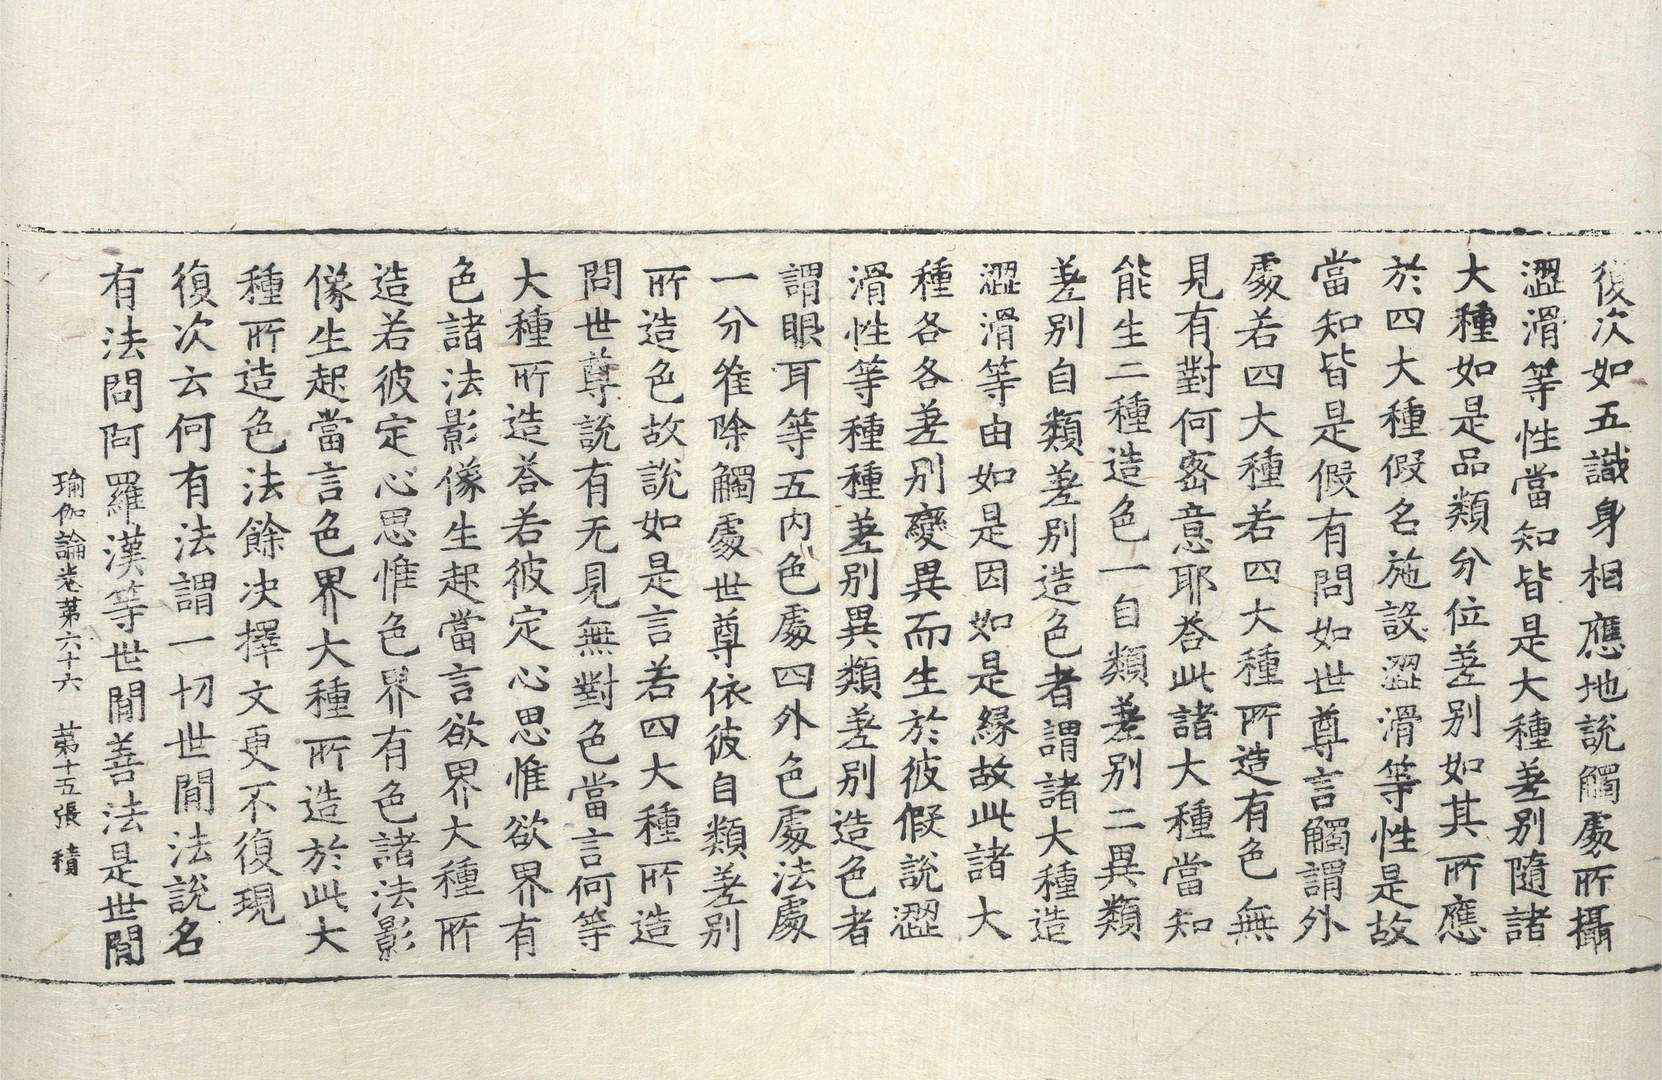 復次如五識身相應地說觸處所攝
澀滑等性當知皆是大種差別隨諸
大種如是品類分位差別如其所應
於四大種假名施設澀滑等性是故
當知皆是假有問如世尊言觸謂外
處若四大種若四大種所造有色無
見有對何密意耶荅此諸大種當知
能生二種造色一自類差別二異類
差別自類差別造色者謂諸大種造
澀滑等由如是因如是緣故此諸大
種各各差別變異而生於彼假說澀
滑性等種種差別異類差別造色者
謂眼耳等五內色處四外色處法處
一分唯除觸處世尊依彼自類差別
所造色故說如是言若四大種所造
問世尊說有无見無對色當言何等
大種所造荅若彼定心思惟欲界有
色諸法影像生起當言欲界大種所
造若彼定心思惟色界有色諸法影
像生起當言色界大種所造於此大
種所造色法餘決擇文更不復現
復次云何有法謂一切世間法說名
有法問阿羅漢等世間善法是世間
瑜伽論卷第六十六　第十五張　積